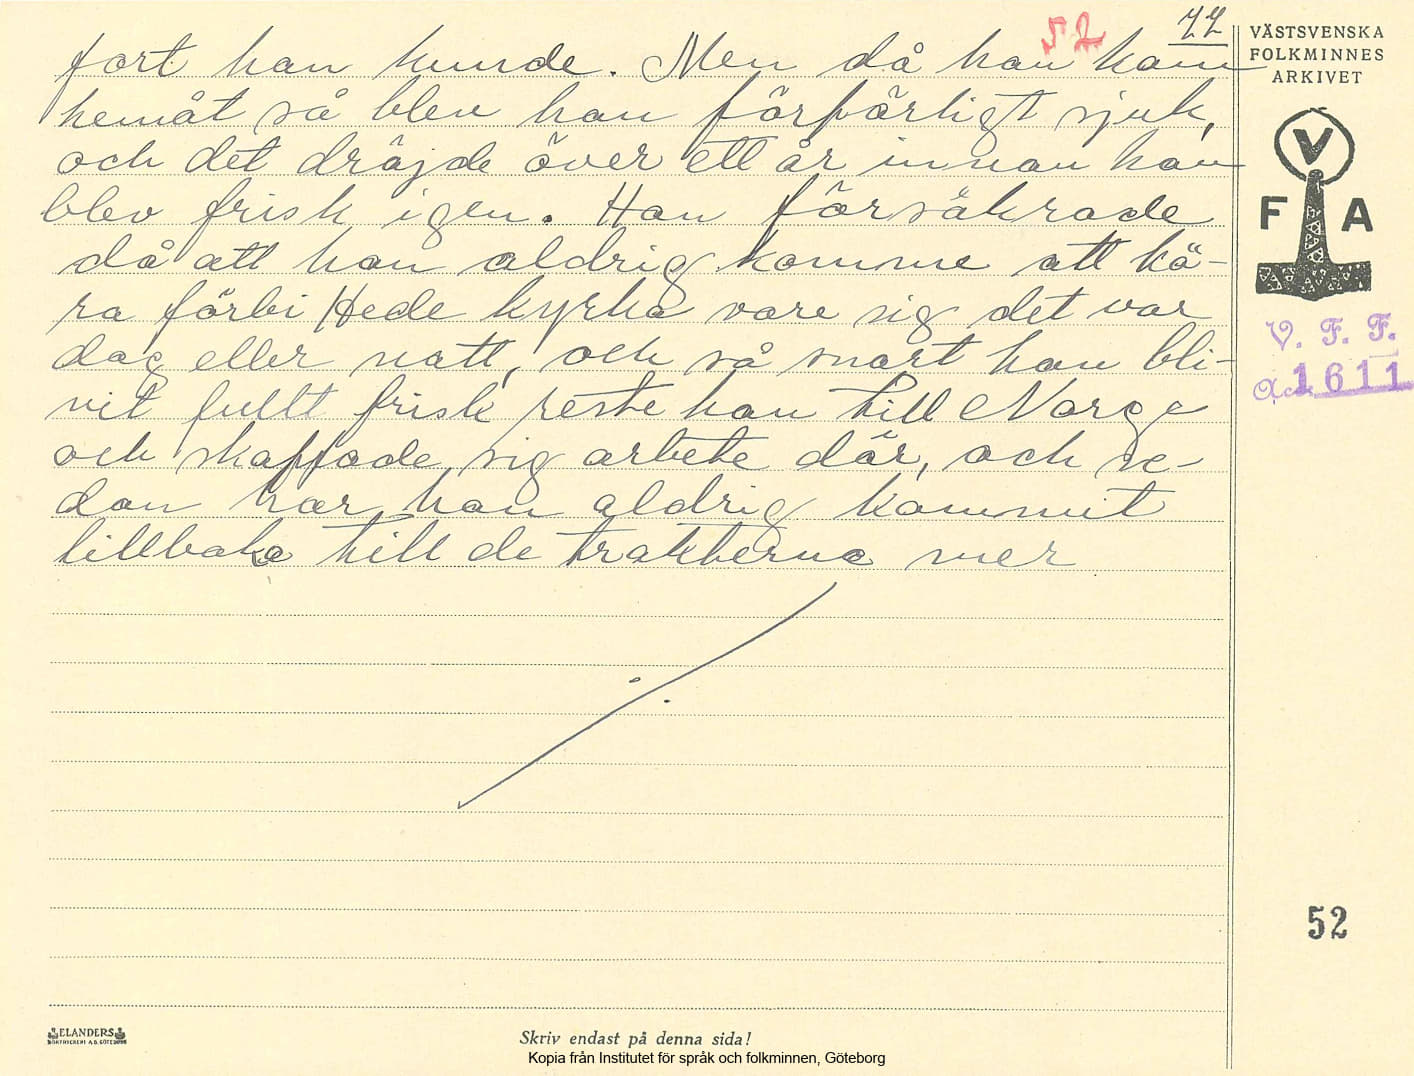 52
77
fort han kunde. Men då han kom
hemåt så blev han förfärligt sjuk,
och det dröjde över ett år innan han
blev frisk igen. Han försäkrade
då att han aldrig komme att kö-
ra förbi Hede kyrka vare sig det var
dag eller natt, och så snart han bli-
vit fullt frisk reste han till Norge
och skaffade sig arbete där, och se-
dan har han aldrig kommit
tillbaka till de trakterna mer
VÄSTSVENSKA
FOLKMINNES
ARKIVET
V
F A
V. F. F.
Acc. 1611
52
ELANDERS
BOKTRYCKERI A.B. GÖTEBORG
Skriv endast på denna sida!
Kopia från Institutet för språk och folkminnen, Göteborg